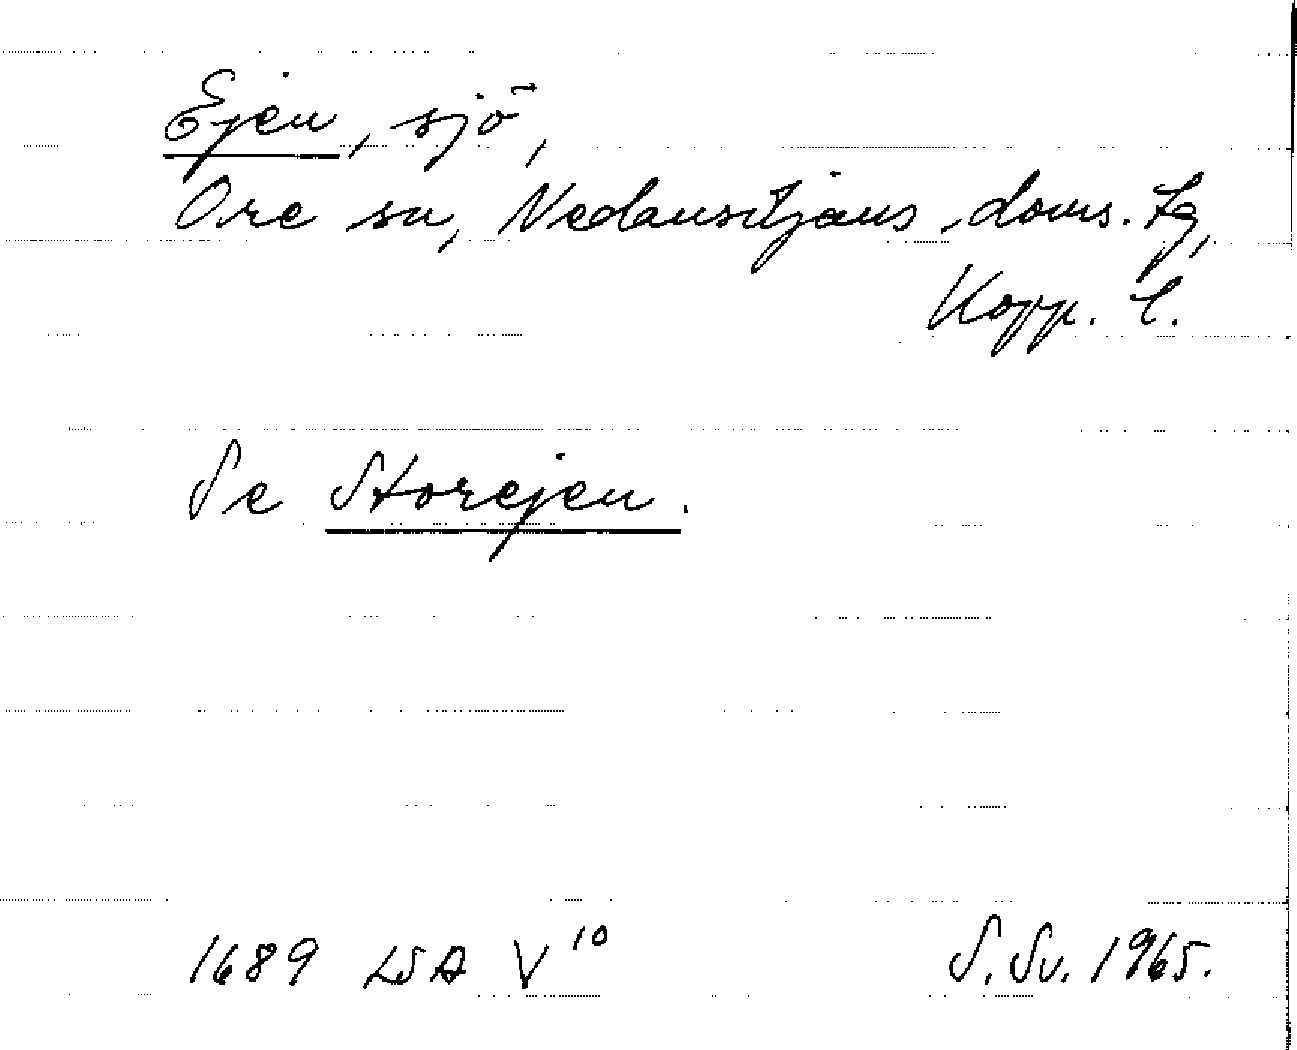 Ejen, sjö,
Ore sn, Nedansiljans doms. tg,
Kopp. l.
Se Storejen.
1689 LSA V¹⁰ S. Sv. 1965.